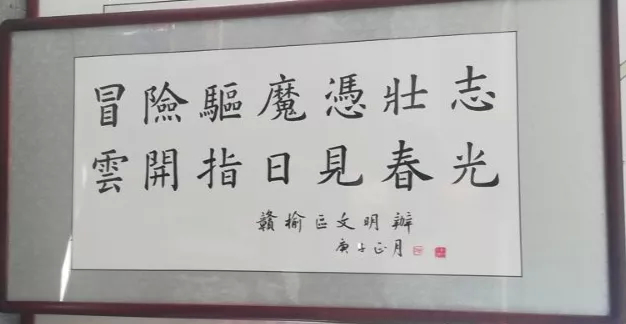 冒險驅魔憑壯志
雲開指日見春光
贛榆區文明辦
庚子正月